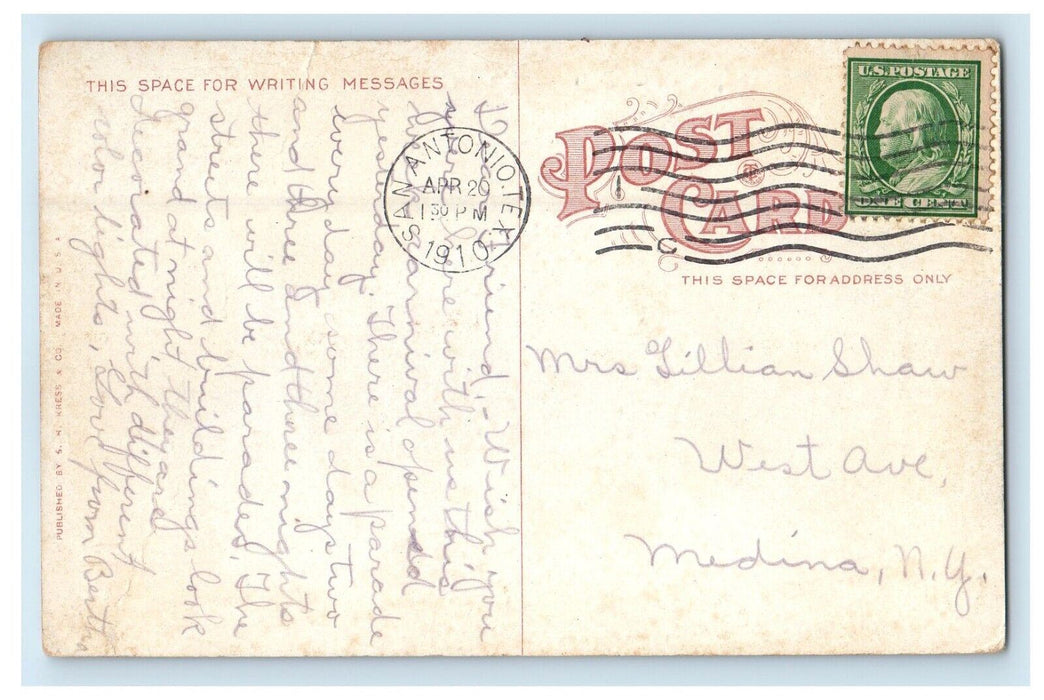 THIS SPACE FOR WRITING MESSAGES
Dear Friend,- Wish you
were with us this
Carnival opened
yesterday. There is a parade
every day some days two
and three. And these nights
there will be parades. The
streets and buildings look
grand at night, they are
decorated with different
color lights, Love from Bertha
SAN ANTONIO. TEX.
APR 20
1 30 PM
1910
U.S. POSTAGE
ONE CENT
1
C
POST
CARD
THIS SPACE FOR ADDRESS ONLY
Mrs Lillian Shaw
West Ave,
Medina, N.Y.
PUBLISHED BY S. H. KRESS & CO. MADE IN U.S.A.